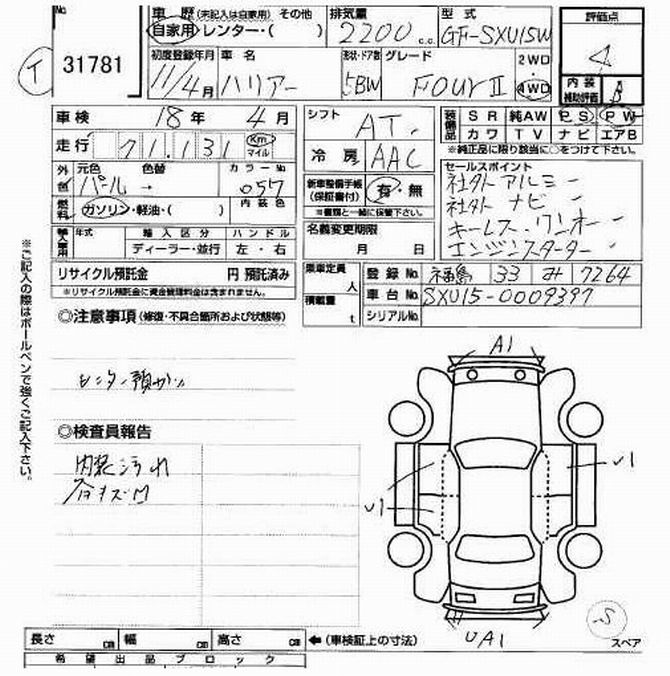 No. 31781
イ
車歴 (未記入は自家用) その他
自家用・レンター・( )
排気量 2200 c.c.
型式 GF-SXU15W
評価点 4
初度登録年月 11/4月
車名 ハリアー
形状・ドア数 5BW
グレード FOUR II
2WD
4WD
内装補助評価 B
車検 18年 4月
走行 71,131 Km マイル
シフト AT
冷房 AAC
装備品 SR 純AW PS PW
カワ TV ナビ エアB
※純正品に限り該当に○をつけて下さい。
外色 元色 色替 カラーNo
パール → 057
燃料 ガソリン・軽油・( ) 内装色
輸入車用 年式 輸入区分 ハンドル
ディーラー・並行 左・右
新車整備手帳 (保証書付) 有・無
※書類と一緒に保管下さい。
名義変更期限
月 日
セールスポイント
社外アルミ
社外ナビ
キーレス・ワンオー
エンジンスターター
リサイクル預託金 円 預託済み
※リサイクル預託金に資金管理料金は含まれません。
乗車定員 人
積載量 t
登録No. 福島 33 み 7264
車台No. SXU15-0009397
シリアルNo.
◎注意事項 (修復・不具合箇所および状態等)
モニター預かり
◎検査員報告
内装汚れ
各キズM
※ご記入の際はボールペンで強くご記入下さい。
A1
U1
U1
UA1
S
スペア
長さ cm 幅 cm 高さ cm ← (車検証上の寸法)
希望出品ブロック